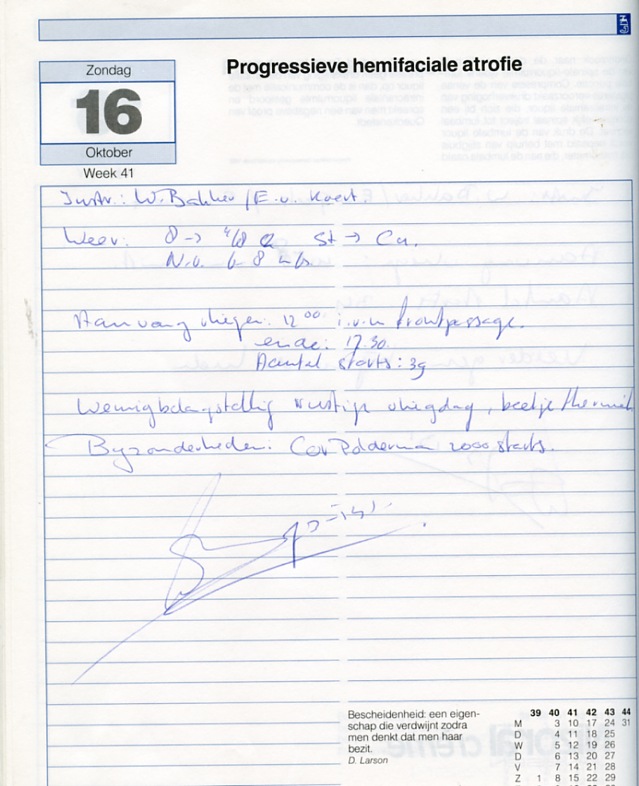 Progressieve hemifaciale atrofie
Zondag
16
Oktober
Week 41
Instr.: W. Bakker / E. v. Koert.
Weer: 8 -> 4/8 St -> Cu.
N.O. 6-8 m/s
Aanvang vliegen: 12.00 i.v.m frontpassage.
einde: 17.30
Aantal starts: 39
Weinig belangstelling rustige vliegdag, beetje thermiek
Byzonderheden: Cor Polderman 2000 starts.
Bescheidenheid: een eigen-
schap die verdwijnt zodra
men denkt dat men haar
bezit.
D. Larson
39 40 41 42 43 44
M 3 10 17 24 31
D 4 11 18 25
W 5 12 19 26
D 6 13 20 27
V 7 14 21 28
Z 1 8 15 22 29